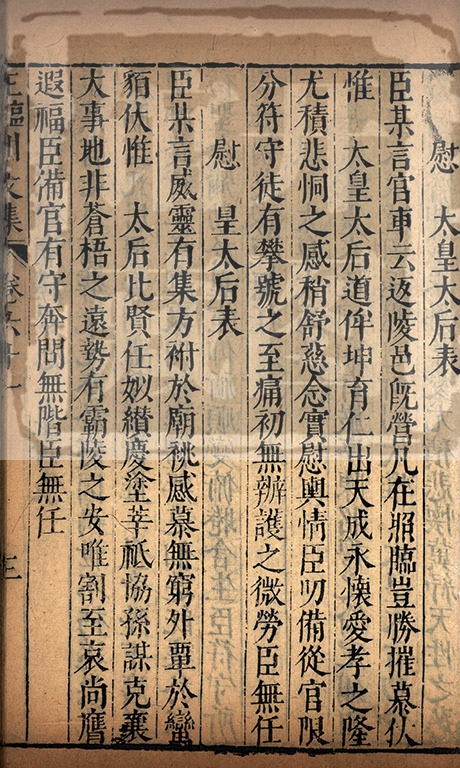 慰　太皇太后表
臣某言官車云返陵邑既營凡在照臨豈勝摧慕伏
惟　太皇太后道侔坤育仁出天成永懷愛孝之隆
尤積悲恫之感稍舒慈念實慰輿情臣叨備從官限
分符守徒有攀號之至痛初無辦護之微勞臣無任
慰　皇太后表
臣某言威靈有集方祔於廟祧感慕無窮外覃於蠻
貊伏惟　太后比賢任姒纘慶塗莘祗協孫謀克襄
大事地非蒼梧之遠勢有霸陵之安唯割至哀尚膺
遐福臣備官有守奔問無階臣無任
王臨川文集　卷六十一　三